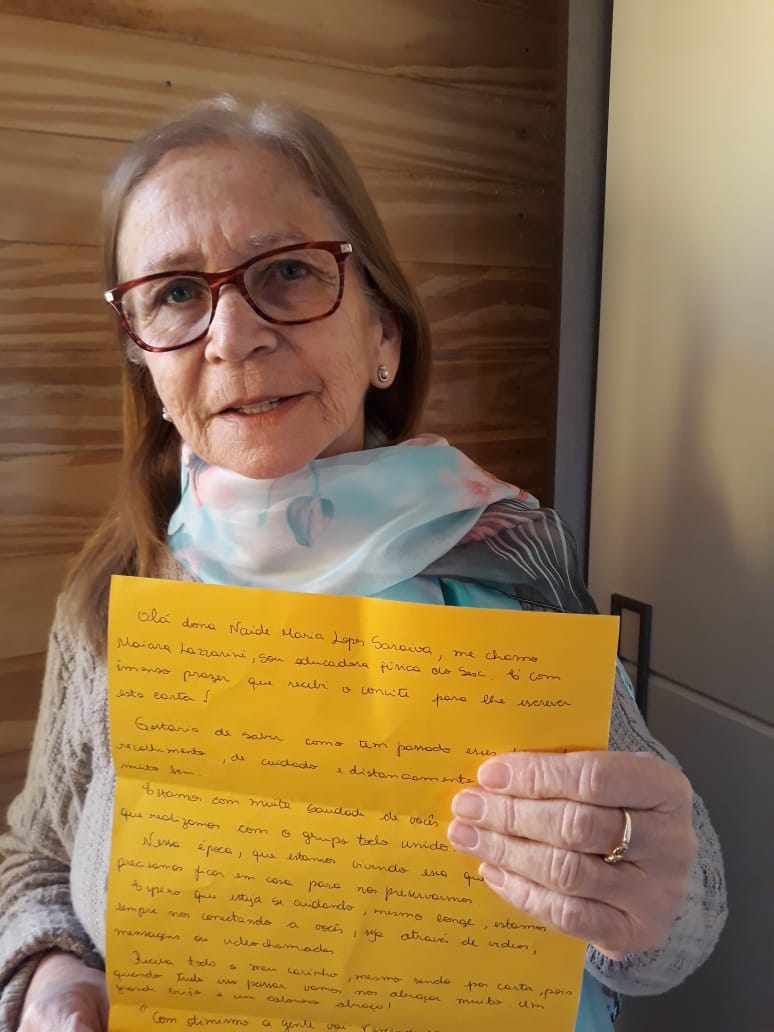 Olá dona Naide Maria Lopes Saraiva, me chamo
Maiara Lazzarini, sou educadora física do Sesc. É com
imenso prazer que recebi o convite para lhe escrever
esta carta!
Gostaria de saber como tem passado esses
recolhimento, de cuidado e distanciamento
muito bem.
Estamos com muita saudade de vocês
que realizamos com o grupo todo unido.
Nessa época, que estamos vivendo essa
precisamos ficar em casa para nos preservarmos
Espero que esteja se cuidando, mesmo longe, estamos
sempre nos conectando a vocês, seja através de vídeos,
mensagens ou videochamadas
Receba todo o meu carinho, mesmo sendo por carta, pois
quando tudo isso passar vamos nos abraçar muito. Um
grande beijo e um caloroso abraço!
"Com otimismo a gente vai